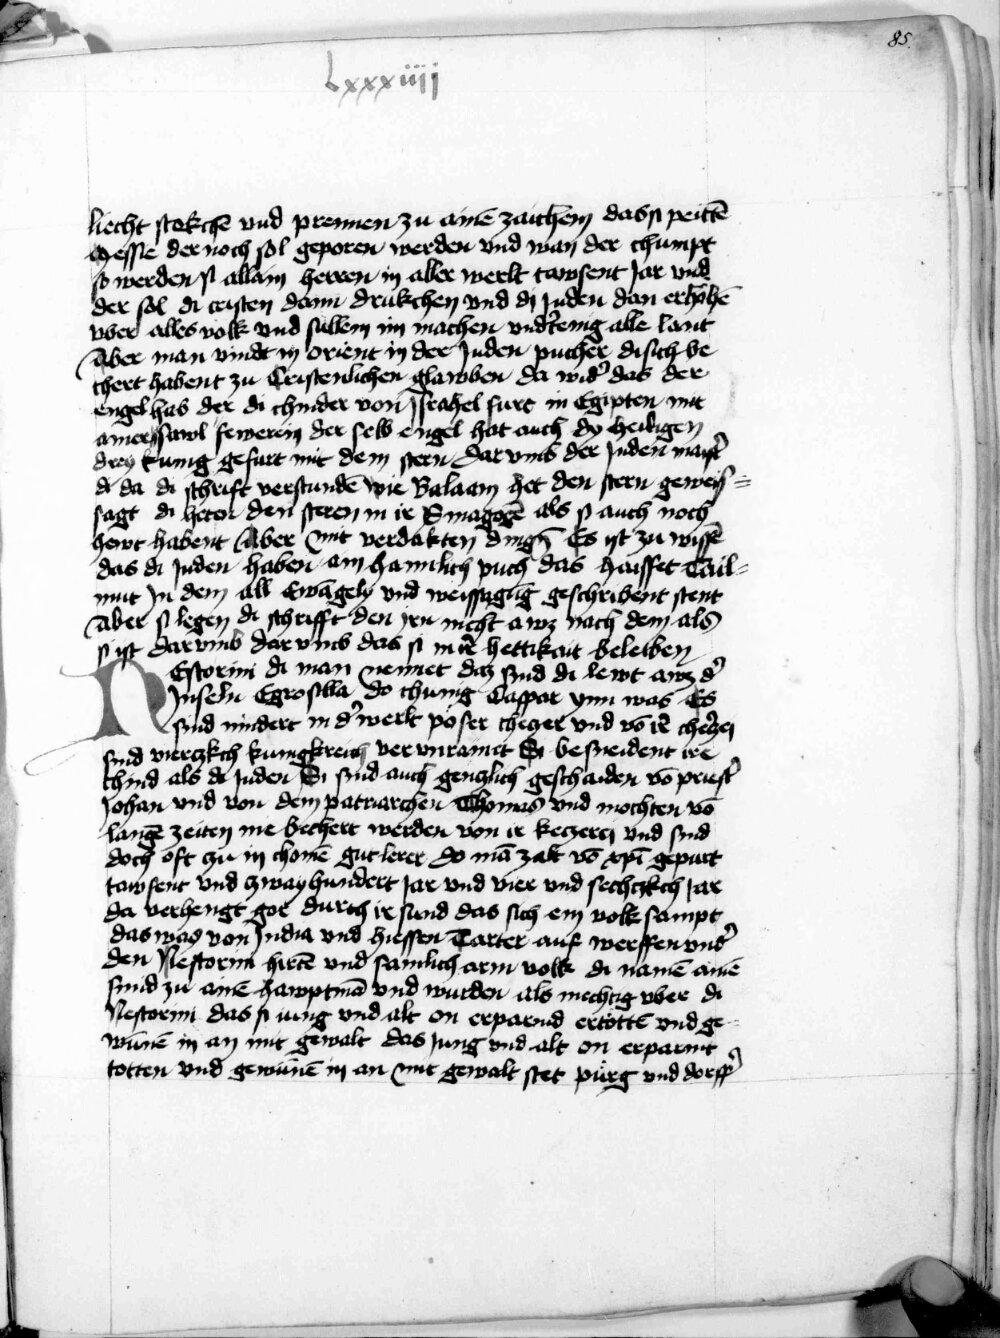 85.
lxxxiiij
liecht stekchē vnd prennen zu ainē zaichem das si peittē
Messie der noch sol geporen werden vnd wan der chumpt
so werden si allain herren in aller werlt tawsent Jar vnd
der sol di cristen dann drukchen vnd di Juden dan erhöhē
vber alles volk vnd sullem im machen vndtenig alle lant
Aber man vindt in orient in der Juden pucher di sich be
chert habent zu Cristenlichen glawben da wid das der
engel hab der di chinder von Jsrahel furt in Egipten mit
ainer sawl fewerein der selb engel hat auch dy heiligen
drey kunig gefurt mit dem stern dar vmb der Juden maist
di da di schrift verstundē wie Balaam het den stern geweis=
sagt di heten den steren in ir Sinagogē als si auch noch
hewt habent Aber mit verdakten dingn Es ist zu wissē
das di Juden haben ain haimlich puch das haisset Tail=
mut Jn dem all Ewāgely vnd weissagūg geschribent stent
Aber si legen di schrifft den irn nicht awz nach dem als
si ist dar vmb dar vmb das si in ir hettikait beleiben
NEstorini di man nennet daz sind di lewt awz d
Jnseln Egrosilla do chunig Caspar vnn was Es
sind nindert in d werlt poser checzer vnd vō ir checzei
sind vierczkch kunigkreich vervnraint Si besneident ire
chind als di Juden Si sind auch genczlich geschaiden vō priest
Johan vnd von dem patriarchen Thomas vnd mochten vō
langē zeiten nie bechert werden von ir keczerei vnd sind
doch oft czu in chomē gut lerer do mā zalt vō xpī gepurt
tawsent vnd czway hundert Jar vnd vier vnd sechczkch Jar
da verhengt got durch ir sund das sich ein volk sampt
das was von Jndia vnd hiessen Tarter auf werffen vnd
den Nestorini hirtē vnd sāmlich arm volk di namē ainē
smid zu ainē hawptmā vnd wurden als mechtig vber di
Nestorini das si iung vnd alt on erparmd ertottē vnd ge-
wūnē in an mit gewalt das Jung vnd alt on erparmt
totten vnd gewūnē in an mit gewalt stet pürg vnd dorff